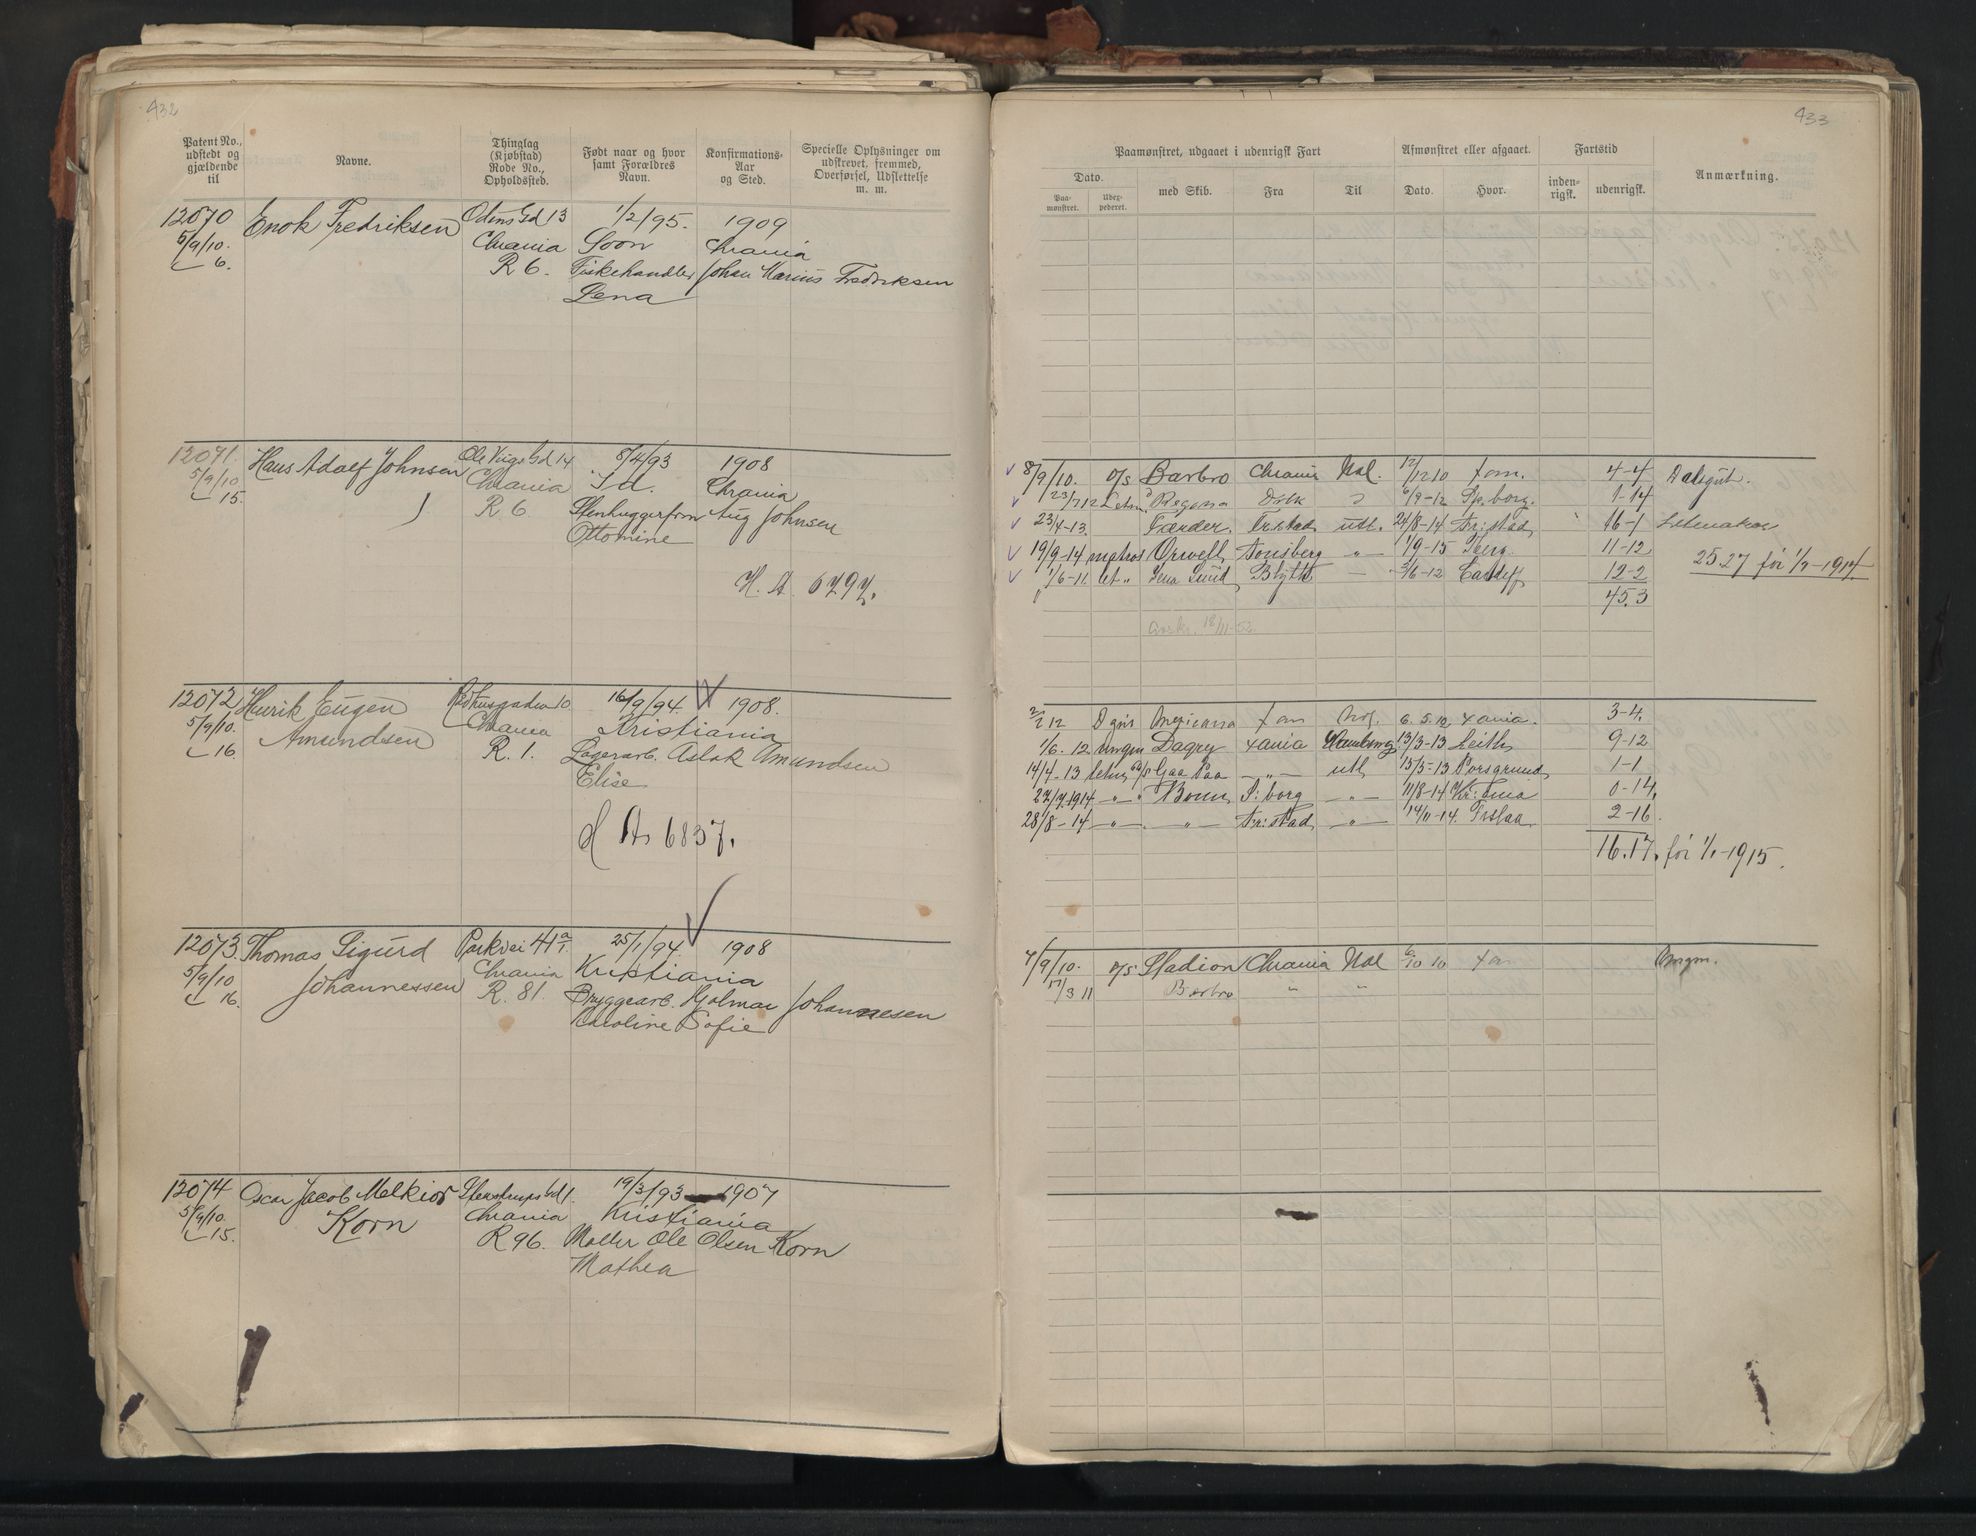 432
Patent No., udstedt og gjældende til
Navne.
Thinglag (Kjøbstad) Rode No., Opholdssted.
Født naar og hvor samt Forældres Navn.
Konfirmations- Aar og Sted.
Specielle Oplysninger om udskrevet, fremmed, Overførsel, Udslettelse m. m.
12070 Enok Fredriksen Odins Gd 13 1/2/95. 1909
5/9/10. Chrania Soon Chrania
6. R 6. Fiskehandler Johan Marius Fredriksen
Lena
12071. Hans Adolf Johnsen Ole Vigs Gd 14 8/4/93 1908
5/9/10 Chrania Id. Chrania
15. R 6 Stenhuggerfrm Aug Johnsen
Ottomine
H. A. 6797.
12072 Henrik Eugen Raadhusgaden 10 16/9/94. 1908.
5/9/10. Amundsen Chrania Kristiania
16. R. 1. Lagerarb. Aslak Amundsen
Elise
H A 6837.
12073. Thomas Sigurd Parkvei 41 a/1. 25/1/94. 1908
5/9/10 Johannessen Chrania Kristiania
16. R. 81. Bryggearb. Hjalmar Johannesen
Karoline Sofie
12074 Oscar Jacob Melkior Stenstrups Gd 1. 19/3/93 1907
5/9/10. Korn Chrania Kristiania
15. R 96. Møller Ole Olsen Korn
Mathea
433
Paamønstret, udgaaet i udenrigsk Fart
Afmønstret eller afgaaet.
Fartstid
Anmærkning.
Dato.
Paa- mønstret.
Udex- pederet.
med Skib.
Fra
Til
Dato.
Hvor.
inden- rigsk.
udenrigsk.
8/9/10. D/S Barbro Chrania Mal. 12/12 10 Xan. 4-4 Dæksgut.
23/7 12 Letm. 6/9-12 Sp.borg. 1-14
23/4-13. Færder. Fr.stad utl. 24/8-14 Fr:stad 16-1 Letmatros
19/9-14 matros Orwell Tønsberg -"- 1/9-15 Tberg. 11-12 25.27 før 1/1-1914
1/6-11 let " Lena Sund Blyth - 3/6-12 Cardiff 12-2
45.3
18/11-52.
12 Dgut Mexicana Xan 6. 5. 10, Xania. 3-4.
1/6. 12 Ungm Dagny Xania Hamburg 13/3-13 Leith 9-12
14/4-13 letm Gaa Paa -"- utl 15/5-13 Porsgrund 1-1
27/7.1914 -"- Bonn S:borg -"- 11/8-14 Kr:ania 0-14.
28/8-14 -"- -"- Fr:stad -"- 14/11-14. 2-16.
16.17. før 1/1-1915.
7/9/10. D/S Stadion Chrania Mal 6/10 10 Xan Ungm.
17/3 11 Barbro " "